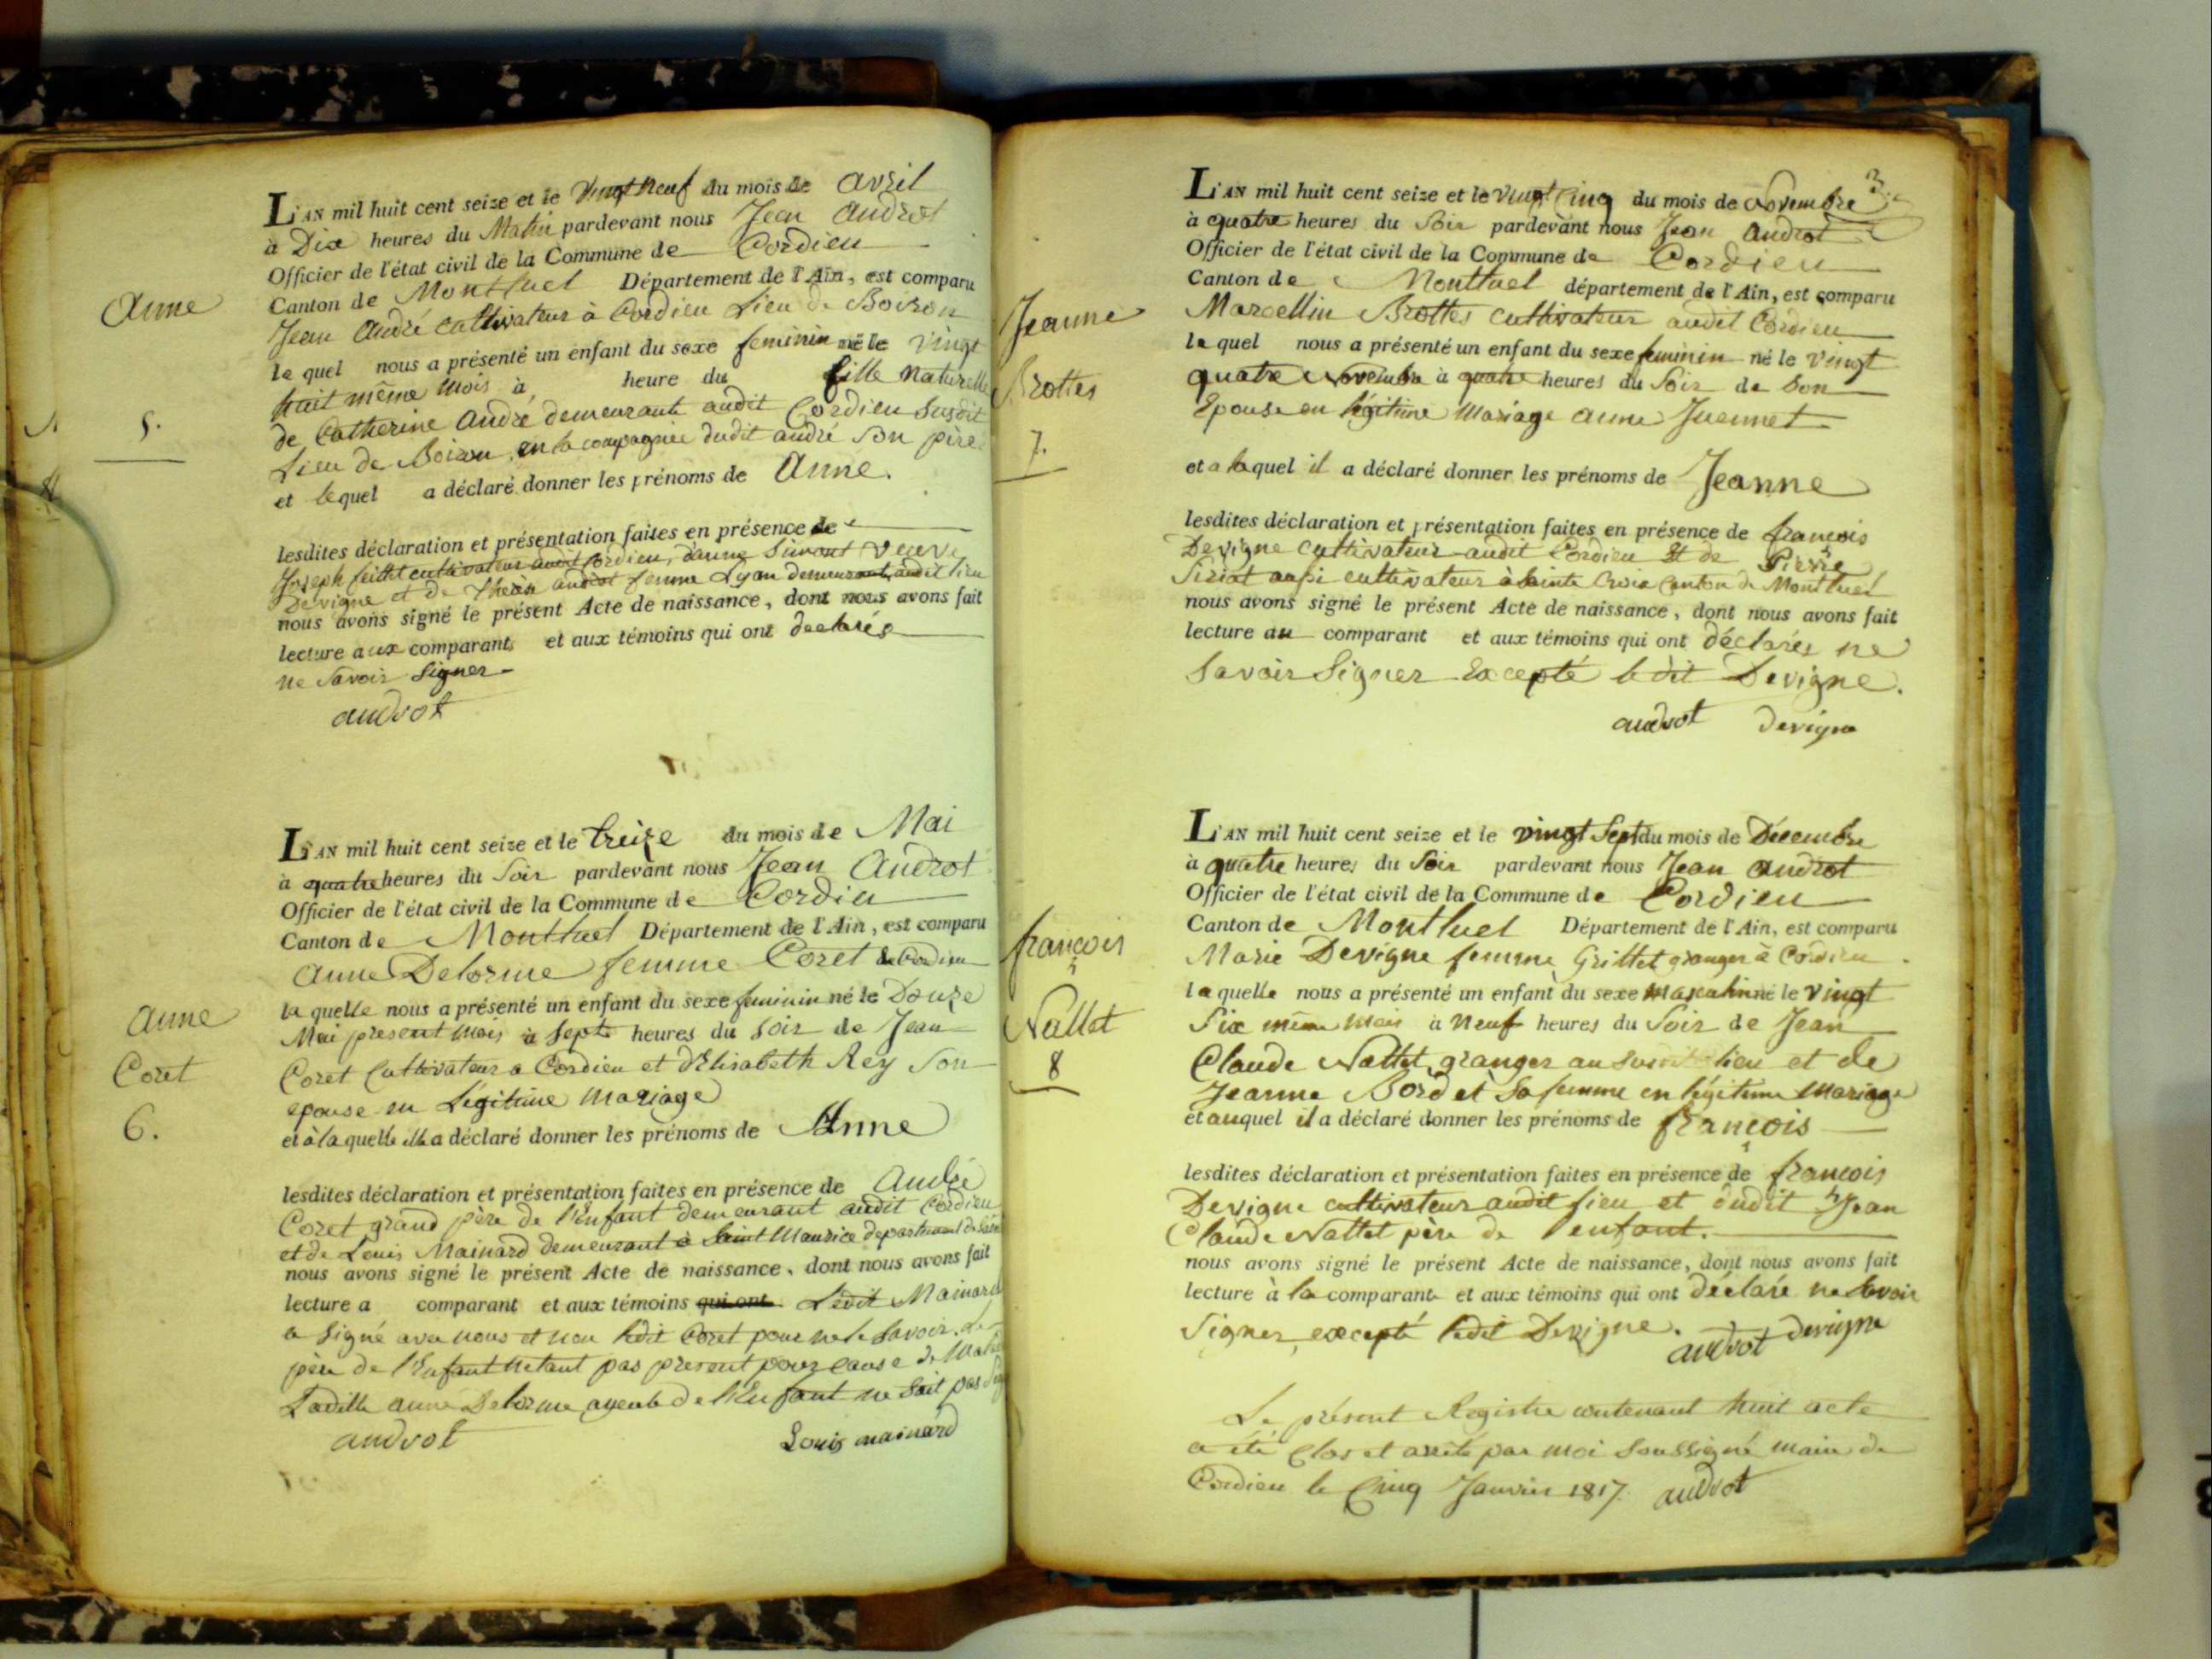 L'AN mil huit cent seize et le Vingt Neuf du mois de Avril
à Dix heures du Matin pardevant nous Jean Audrot
Officier de l'état civil de la Commune de Cordieu
Canton de Montluel Département de l'Ain, est comparu
Jean André Cultivateur à Cordieu Lieu de Boiron
le quel nous a présenté un enfant du sexe feminin né le Vingt
huit même mois à heure du fille Naturelle
de Catherine André demeurante audit Cordieu Susdit
Lieu de Boiron, en la compagnie dudit andré Son père
et lequel a déclaré donner les prénoms de Anne.
Anne
5.
lesdites déclaration et présentation faites en présence de
Joseph cultivateur audit Cordieu, d'anne Simont Veuve
Devigne et de audrot femme Lyon demeurant audit lieu
nous avons signé le présent Acte de naissance, dont nous avons fait
lecture aux comparants et aux témoins qui ont declarés
ne Savoir Signer
audrot
L'AN mil huit cent seize et le treize du mois de Mai
à quatre heures du Soir pardevant nous Jean Audrot
Officier de l'état civil de la Commune de Cordieu
Canton de Montluel Département de l'Ain, est comparu
Anne Delorme femme Coret de Cordieu
la quelle nous a présenté un enfant du sexe feminin né le Douze
Mai present mois à Sept heures du Soir de Jean
Coret Cultivateur a Cordieu et d'Elisabeth Rey Son
epouse en Légitime Mariage
et à la quelle elle a déclaré donner les prénoms de Anne
Anne
Coret
6.
lesdites déclaration et présentation faites en présence de André
Coret grand père de l'Enfant demeurant audit Cordieu
et de Louis Mainard demeurant à Saint Maurice departement
nous avons signé le présent Acte de naissance, dont nous avons fait
lecture a comparant et aux témoins qui ont Ledit Mainard
a Signé avec nous et non ledit Coret pour ne le Savoir. Le
père de l'Enfant n'etant pas present pour cause de
Ladite anne Delorme ayeule de l'Enfant ne Sait pas
audrot Louis mainard
3
L'AN mil huit cent seize et le Vingt Cinq du mois de Novembre
à quatre heures du Soir pardevant nous Jean Audrot
Officier de l'état civil de la Commune de Cordieu
Canton de Montluel département de l'Ain, est comparu
Marcellin Brottes Cultivateur audit Cordieu
le quel nous a présenté un enfant du sexe feminin né le Vingt
quatre Novembre à quatre heures du Soir de Son
Epouse en légitime Mariage anne Juennet
Jeanne
Brottes
7.
et a laquel il a déclaré donner les prénoms de Jeanne
lesdites déclaration et présentation faites en présence de françois
Devigne Cultivateur audit Cordieu Et de Pierre
Siriat aussi cultivateur à Sainte Croix Canton de Montluel
nous avons signé le présent Acte de naissance, dont nous avons fait
lecture au comparant et aux témoins qui ont déclarés ne
Savoir Signer Excepté le dit Devigne.
audrot devigne
L'AN mil huit cent seize et le vingt Sept du mois de Décembre
à quatre heures du Soir pardevant nous Jean Audrot
Officier de l'état civil de la Commune de Cordieu
Canton de Montluel Département de l'Ain, est comparu
Marie Devigne femme Grillet granger à Cordieu
la quelle nous a présenté un enfant du sexe Masculin né le Vingt
Six même Mois à Neuf heures du Soir de Jean
Claude Nallet granger au Susdit lieu et de
Jeanne Bordet Sa femme en légitime Mariage
et auquel il a déclaré donner les prénoms de françois
françois
Nallet
8
lesdites déclaration et présentation faites en présence de françois
Devigne cultivateur audit lieu et dudit Jean
Claude Nallet père de l'enfant.
nous avons signé le présent Acte de naissance, dont nous avons fait
lecture à la comparante et aux témoins qui ont déclaré ne Savoir
Signer, excepté ledit Devigne.
audrot devigne
Le présent Registre contenant huit acte
a été Clos et arrêté par moi Soussigné maire de
Cordieu le Cinq Janvier 1817. audrot